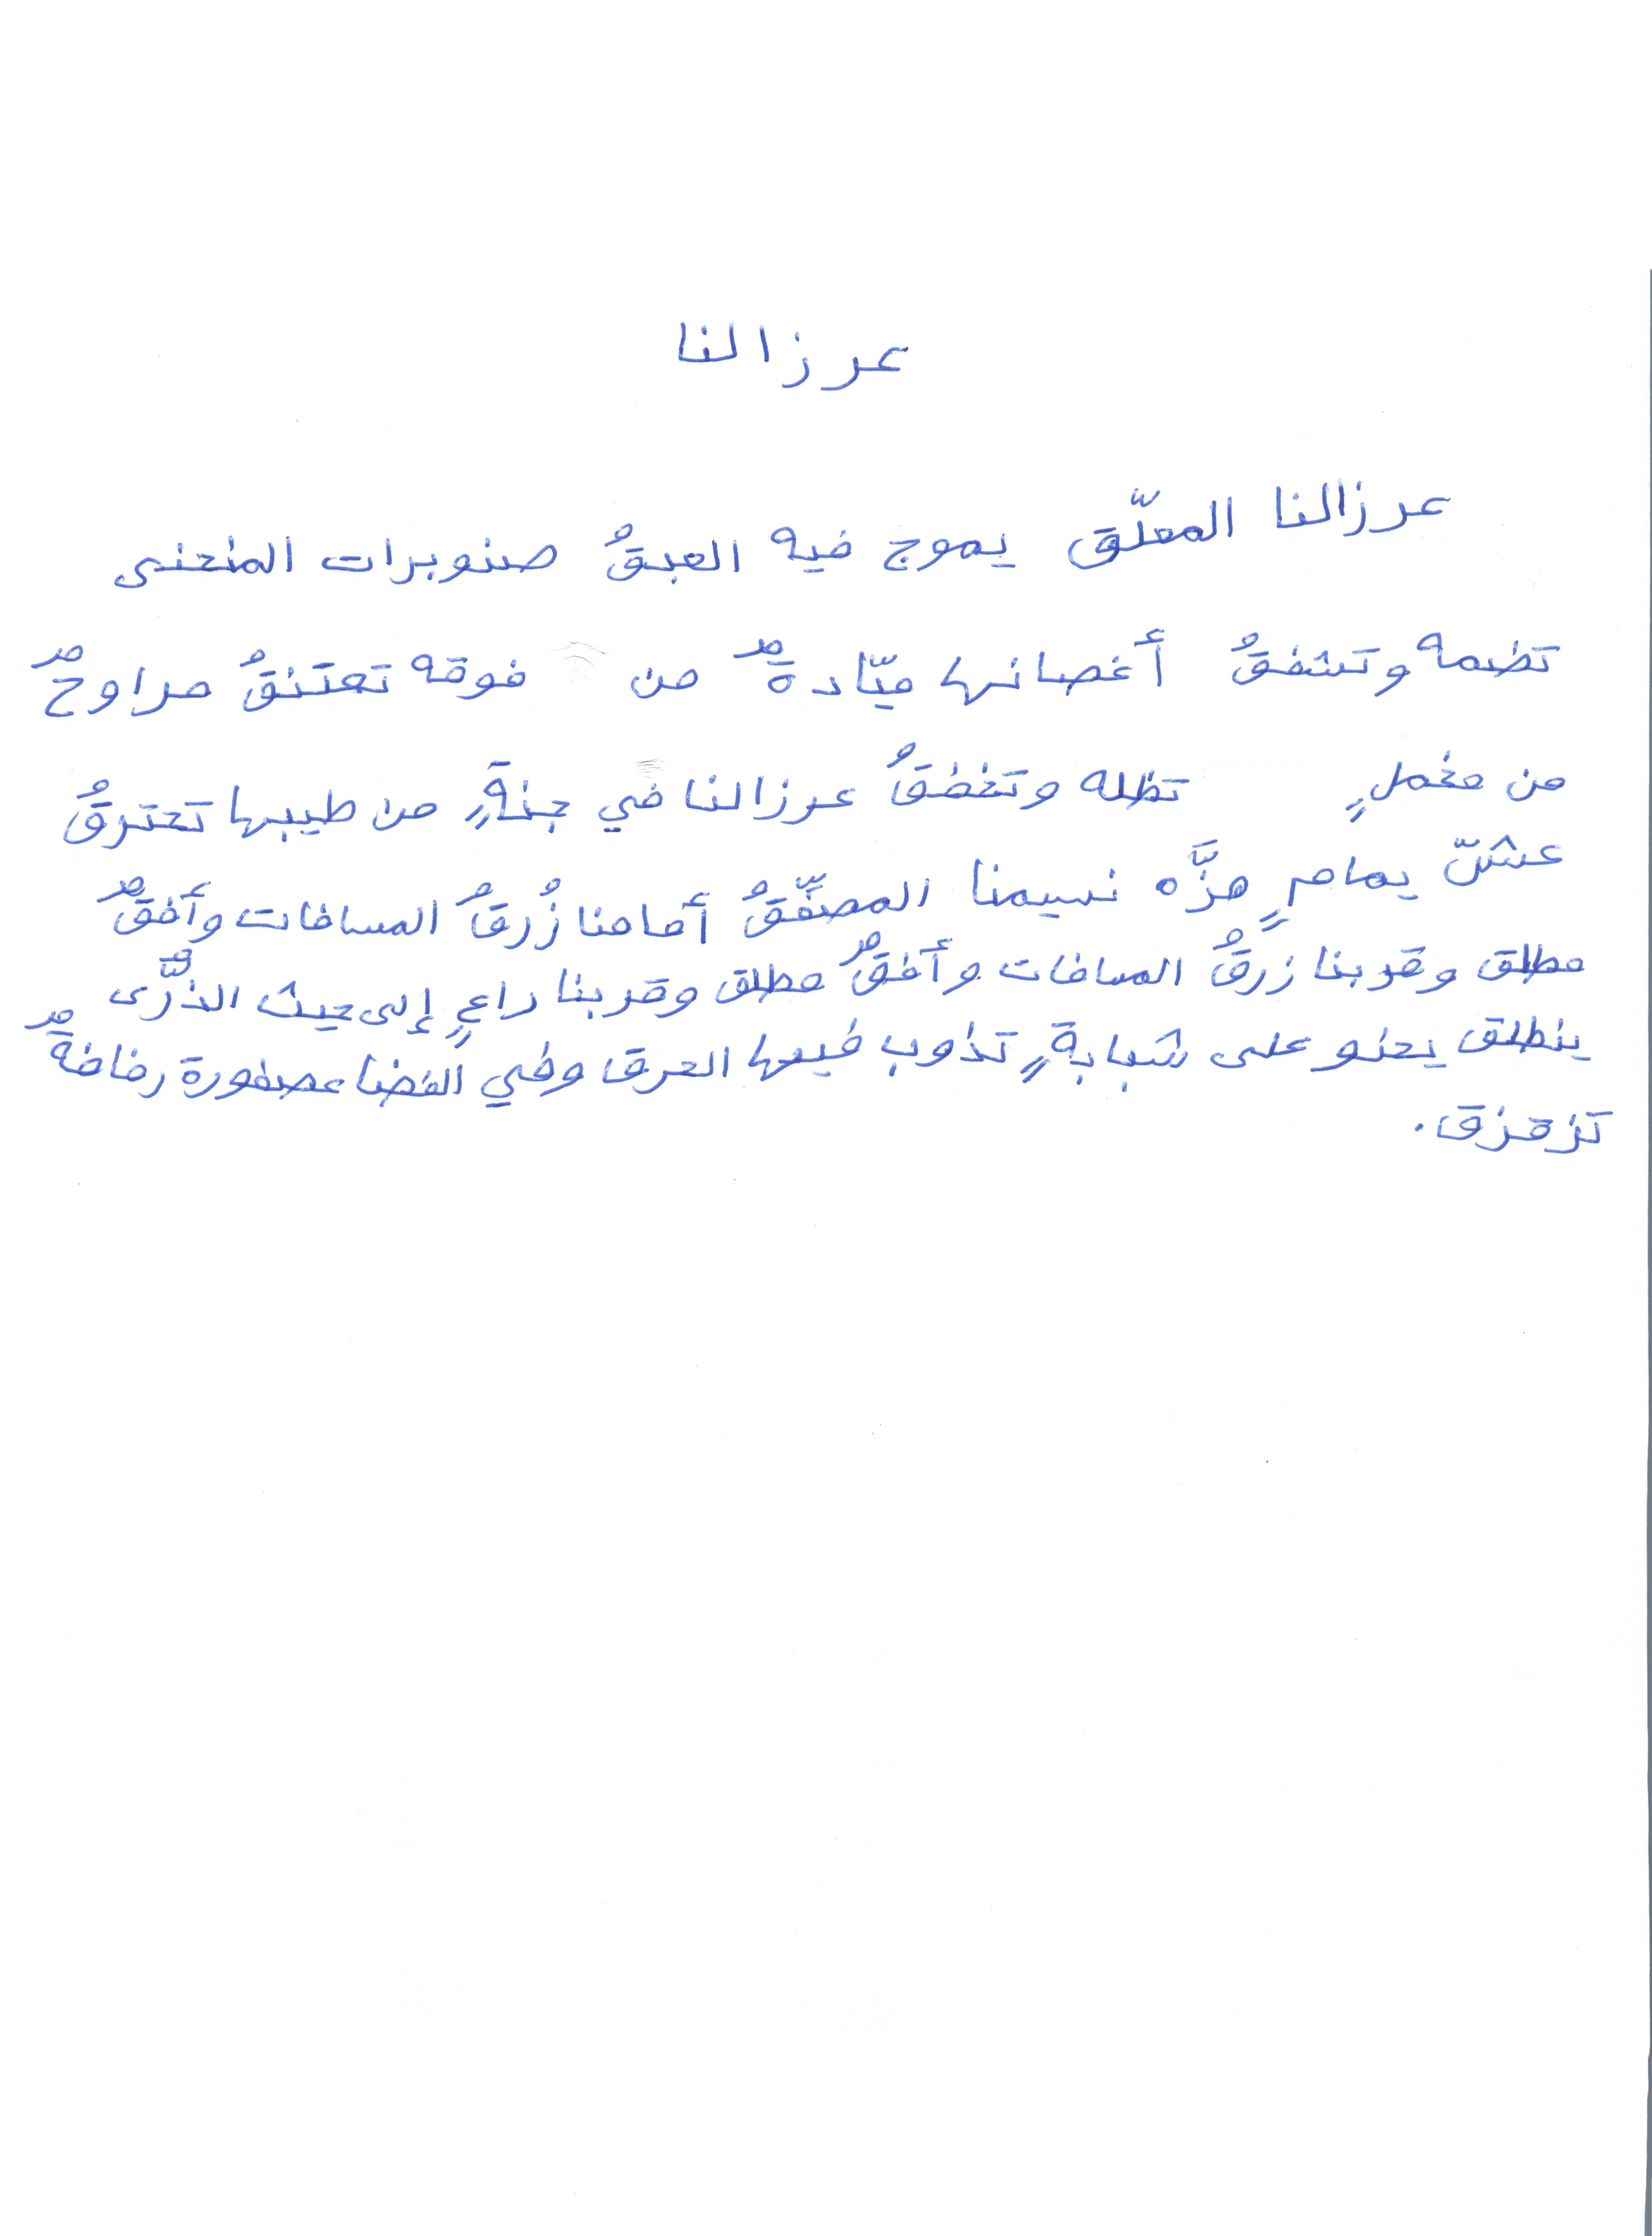 عرزالنا
عرزالنا المعلّق يموج فيه العبقُ صنوبرات المنحنى
تضمه وتشفقُ أغصانها ميّادةٌ من فوقه تعتنقُ مراوحٌ
من مخملٍ تظله وتخفقُ عرزالنا في جنةٍ من طيبها تحترقُ
عشّ يمامٍ هزَّه نسيمنا المصفّقُ أمامنا زُرقُ المسافات وأفقٌ
مطلق وقربنا زرقُ المسافات وأفقٌ مطلق وقربنا راعٍ إلى حيث الذُّرى
ينطلق يحنو على شبابةٍ تذوب فيها الحرق وفي الفضا عصفورة رفافةٌ
تزقزق.